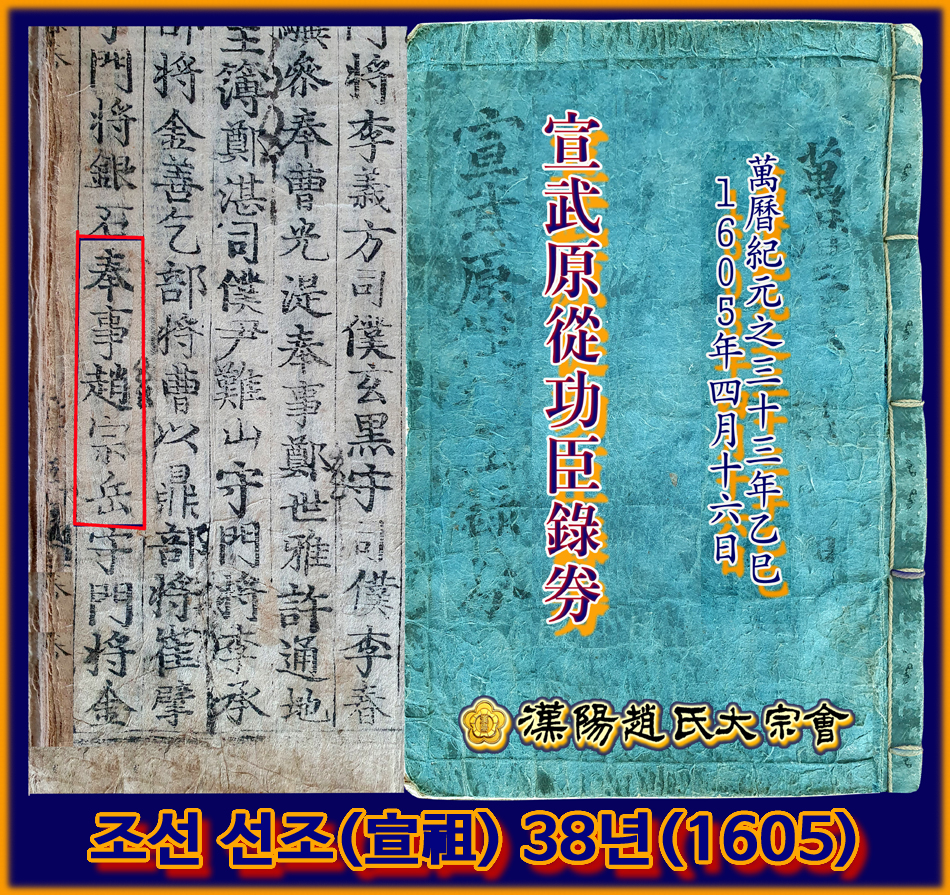 萬曆紀元之三十三年乙巳
1605年四月十六日
宣武原從功臣錄券
宣武原從功臣錄券
漢陽趙氏大宗會
門將李義方司僕玄黑守司僕李春
參奉曹光湜奉事鄭世雅許通地
主簿鄭湛司僕尹難山守門將李承
部將金善乞部將曹以鼎部將崔擘
門將銀石奉事趙宗岳守門將金
조선 선조(宣祖) 38년(1605)